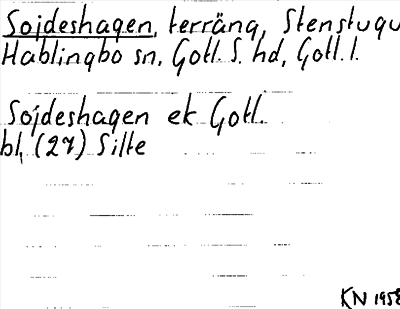 Sojdeshagen, terräng, Stenstugu
Hablingbo sn, Gotl. S. hd, Gotl. l.
Sojdeshagen ek Gotl.
bl, (27) Silte
KN 1958